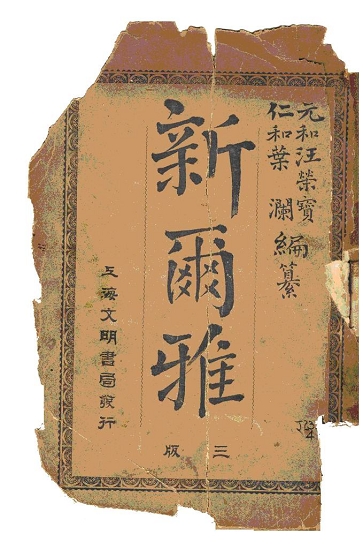 元和汪榮寶
仁和葉瀾編纂
新爾雅
上海文明書局發行
三版